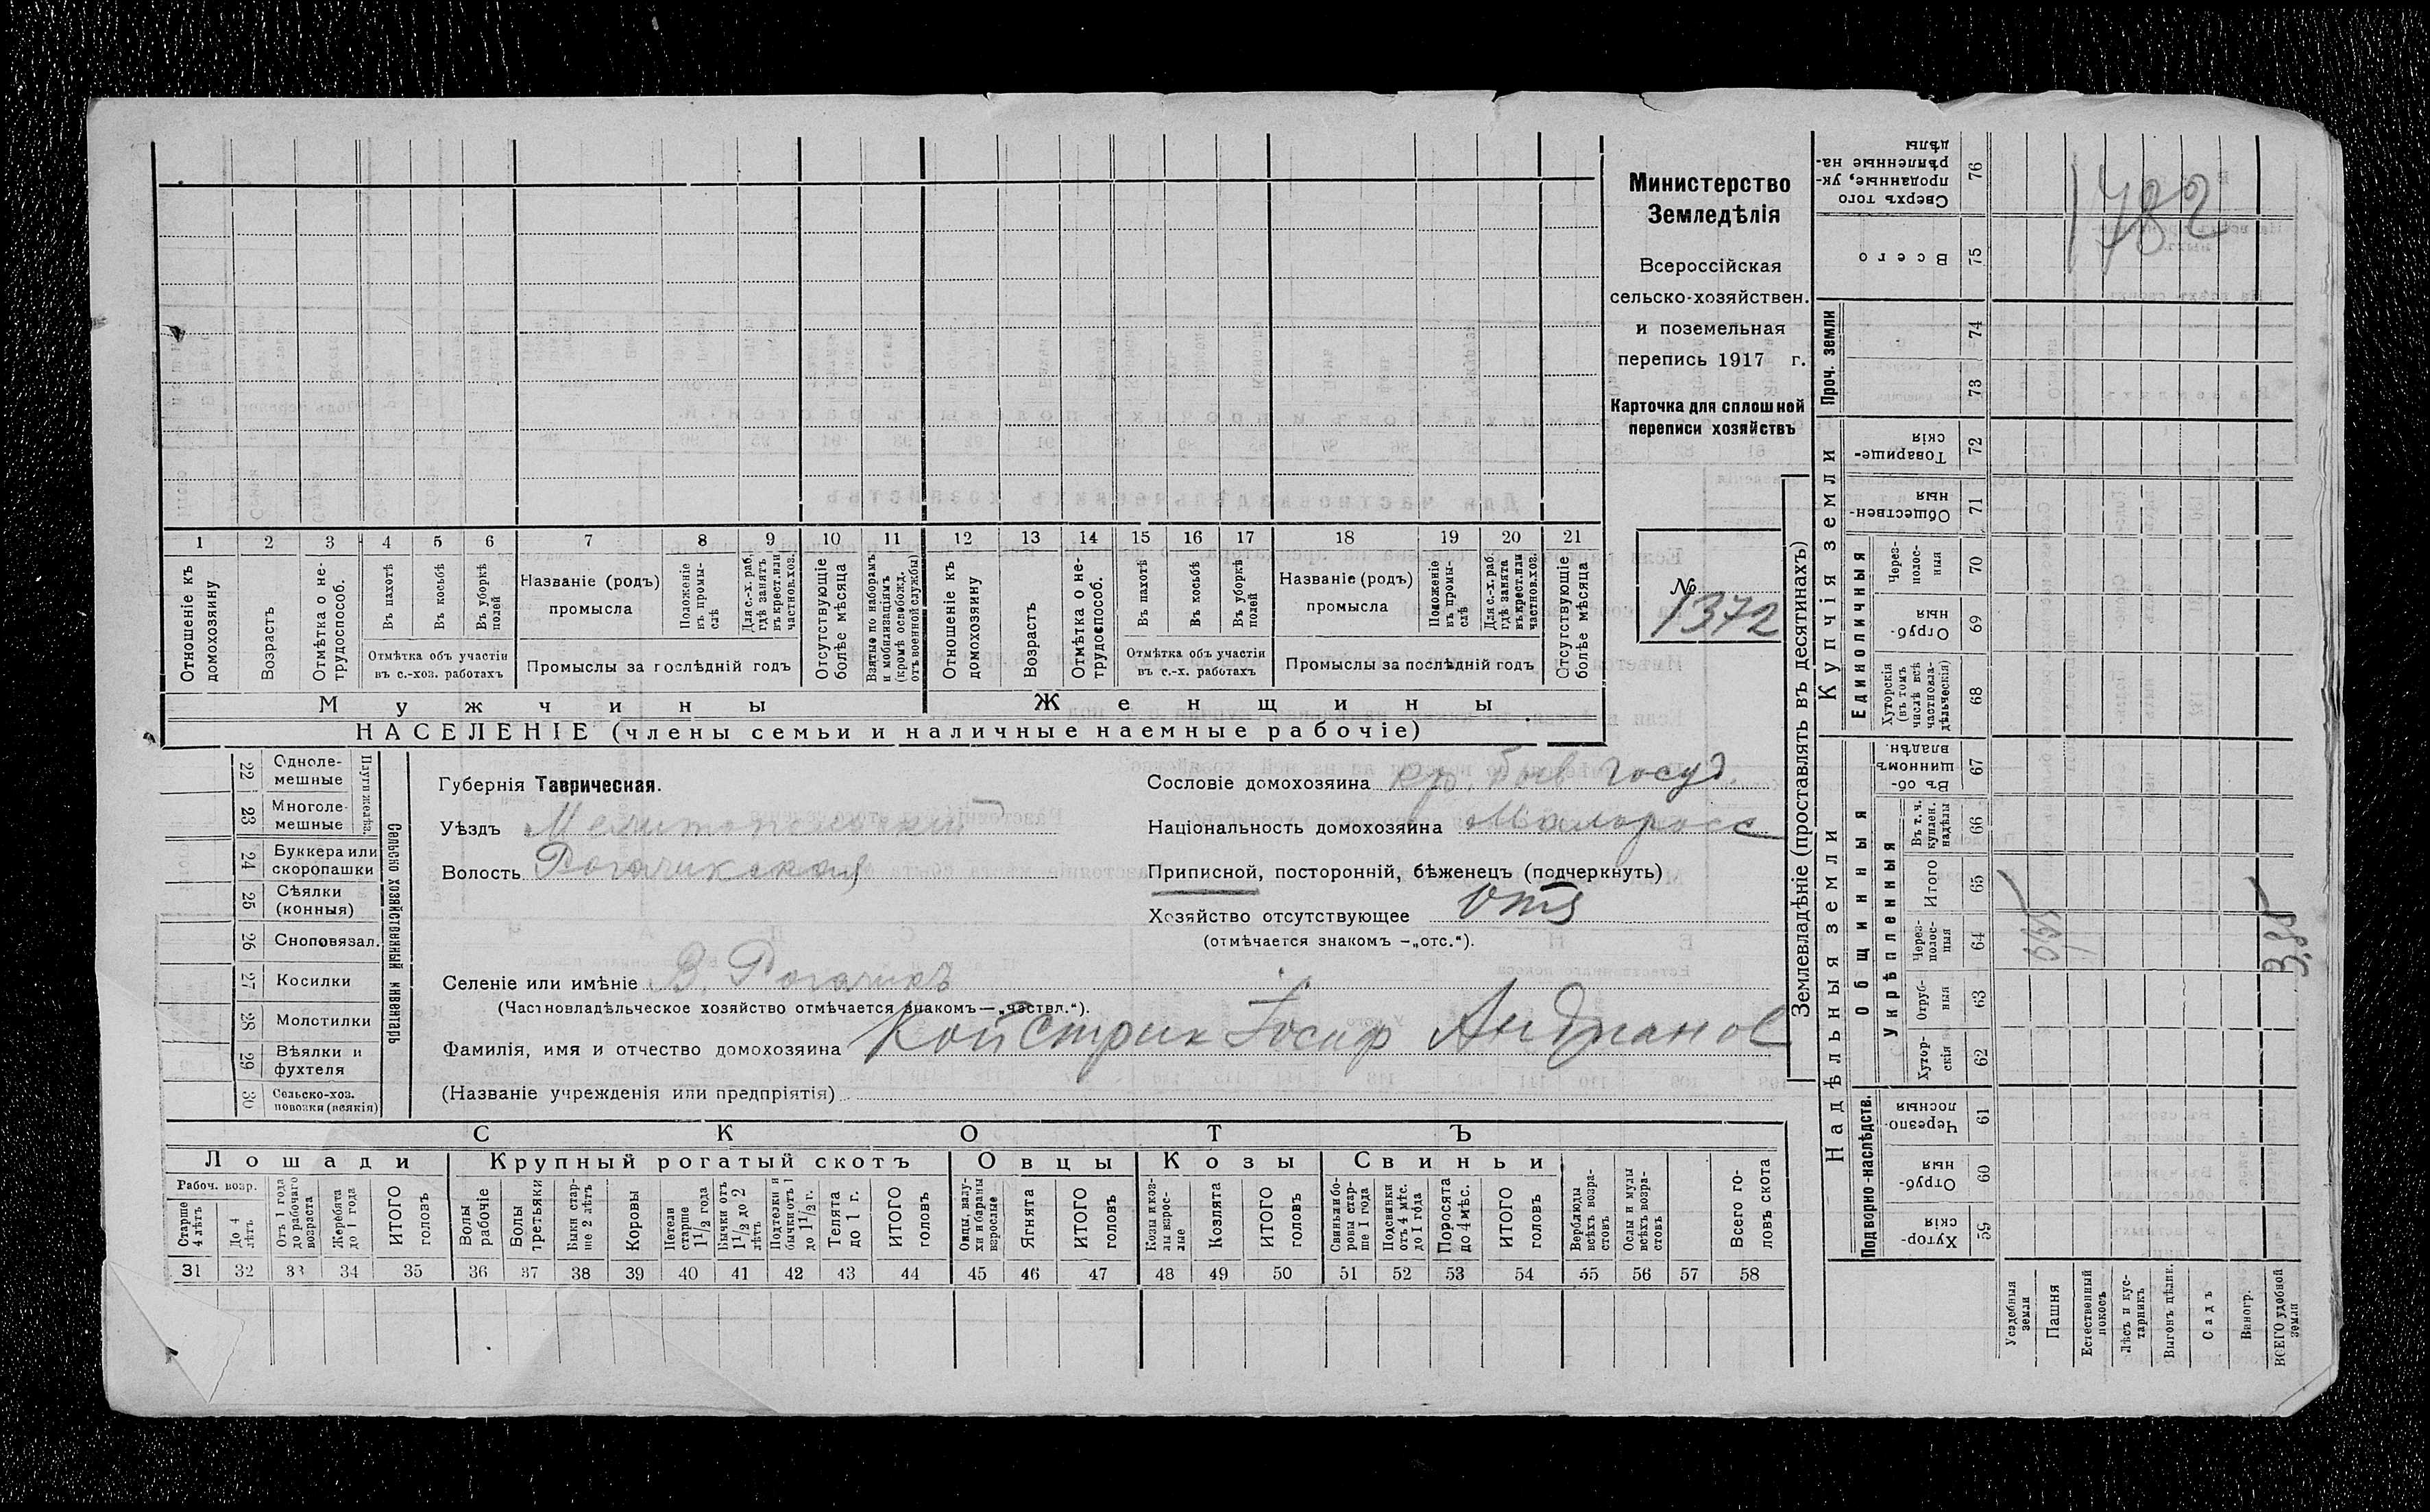 Министерство
Земледѣлія
Всероссійская
сельско-хозяйствен.
и поземельная
перепись 1917 г.
Карточка для сплошной
переписи хозяйствъ
№
1372
1782
1 2 3 4 5 6 7 8 9 10 11 12 13 14 15 16 17 18 19 20 21
Отношеніе къ домохозяину
Возрастъ
Отмѣтка о не-трудоспособ.
Въ пахотѣ
Въ косьбѣ
Въ уборкѣ полей
Отмѣтка объ участіи
въ с.-хоз. работахъ
Названіе (родъ)
промысла
Положеніе въ промы-слѣ
Для с.-х. раб. гдѣ занятъ въ крест. или частнов. хоз.
Промыслы за послѣдній годъ
Отсутствующіе болѣе мѣсяца
Взятые по наборамъ и мобилизаціямъ (кромѣ освобожд. отъ военной службы)
Отношеніе къ домохозяину
Возрастъ
Отмѣтка о не-трудоспособ.
Въ пахотѣ
Въ косьбѣ
Въ уборкѣ полей
Отмѣтка объ участіи
въ с.-х. работахъ
Названіе (родъ)
промысла
Положеніе въ промы-слѣ
Для с.-х. раб. гдѣ занята въ крест. или частнов. хоз.
Промыслы за послѣдній годъ
Отсутствующіе болѣе мѣсяца
Мужчины Женщины
НАСЕЛЕНІЕ (члены семьи и наличные наемные рабочіе)
22 Однолемешные
23 Многолемешные
Плуги желѣз.
24 Буккера или скоропашки
25 Сѣялки (конныя)
26 Сноповязал.
27 Косилки
28 Молотилки
29 Вѣялки и фухтеля
30 Сельско-хоз. повозки (всякія)
Сельско хозяйственный инвентарь
Губернія Таврическая.
Уѣздъ Мелитопольскій
Волость Рогачикская
Селеніе или имѣніе В. Рогачикъ
(Частновладѣльческое хозяйство отмѣчается знакомъ—„частвл.“).
Сословіе домохозяина кр. быв госуд.
Національность домохозяина Малоросс
Приписной, посторонній, бѣженецъ (подчеркнуть)
Хозяйство отсутствующее отс
(отмѣчается знакомъ —„отс.“).
Фамилія, имя и отчество домохозяина Койстрик Іосиф Андианов
(Названіе учрежденія или предпріятія)
СКОТЪ
Лошади Крупный рогатый скотъ Овцы Козы Свиньи
Рабоч. возр.
Старше 4 лѣтъ
До 4 лѣтъ
Отъ 1 года до рабочаго возраста
Жеребята до 1 года
ИТОГО головъ
Волы рабочіе
Волы третьяки
Быки старше 2 лѣтъ
Коровы
Нетели старше 1 1/2 года
Бычки отъ 1 1/2 до 2 лѣтъ
Подтелки и бычки отъ 1 до 1 1/2 г.
Телята до 1 г.
ИТОГО головъ
Овцы, валухи и бараны взрослые
Ягнята
ИТОГО головъ
Козы и козлы взрослые
Козлята
ИТОГО головъ
Свиньи и боровы старше 1 года
Подсвинки отъ 4 мѣс. до 1 года
Поросята до 4 мѣс.
ИТОГО головъ
Верблюды всѣхъ возрастовъ
Ослы и мулы всѣхъ возрастовъ
Всего головъ скота
31 32 33 34 35 36 37 38 39 40 41 42 43 44 45 46 47 48 49 50 51 52 53 54 55 56 57 58
Землевладѣніе (проставлять въ десятинахъ)
Купчія земли
Надѣльныя земли
Проч. земли
Единоличныя
Общинныя
Укрѣпленныя
Подворно-наслѣдств.
Сверхъ того проданные, укрѣпленные надѣлы 76
Всего 75
74
73
Товарищескія 72
Общественныя 71
Черезполосныя 70
Отрубныя 69
Хуторскія (въ томъ числѣ всѣ частновладѣльческія) 68
Въ общинномъ владѣн. 67
Въ т. ч. куплен. надѣлы 66
Итого 65
Черезполосныя 64
Отрубныя 63
Хуторскія 62
Черезполосныя 61
Отрубныя 60
Хуторскія 59
Усадебныя земли
Пашня
Естественный покосъ
Лѣсъ и кустарникъ
Выгонъ цѣлик.
Садъ
Виногр.
ВСЕГО удобной земли